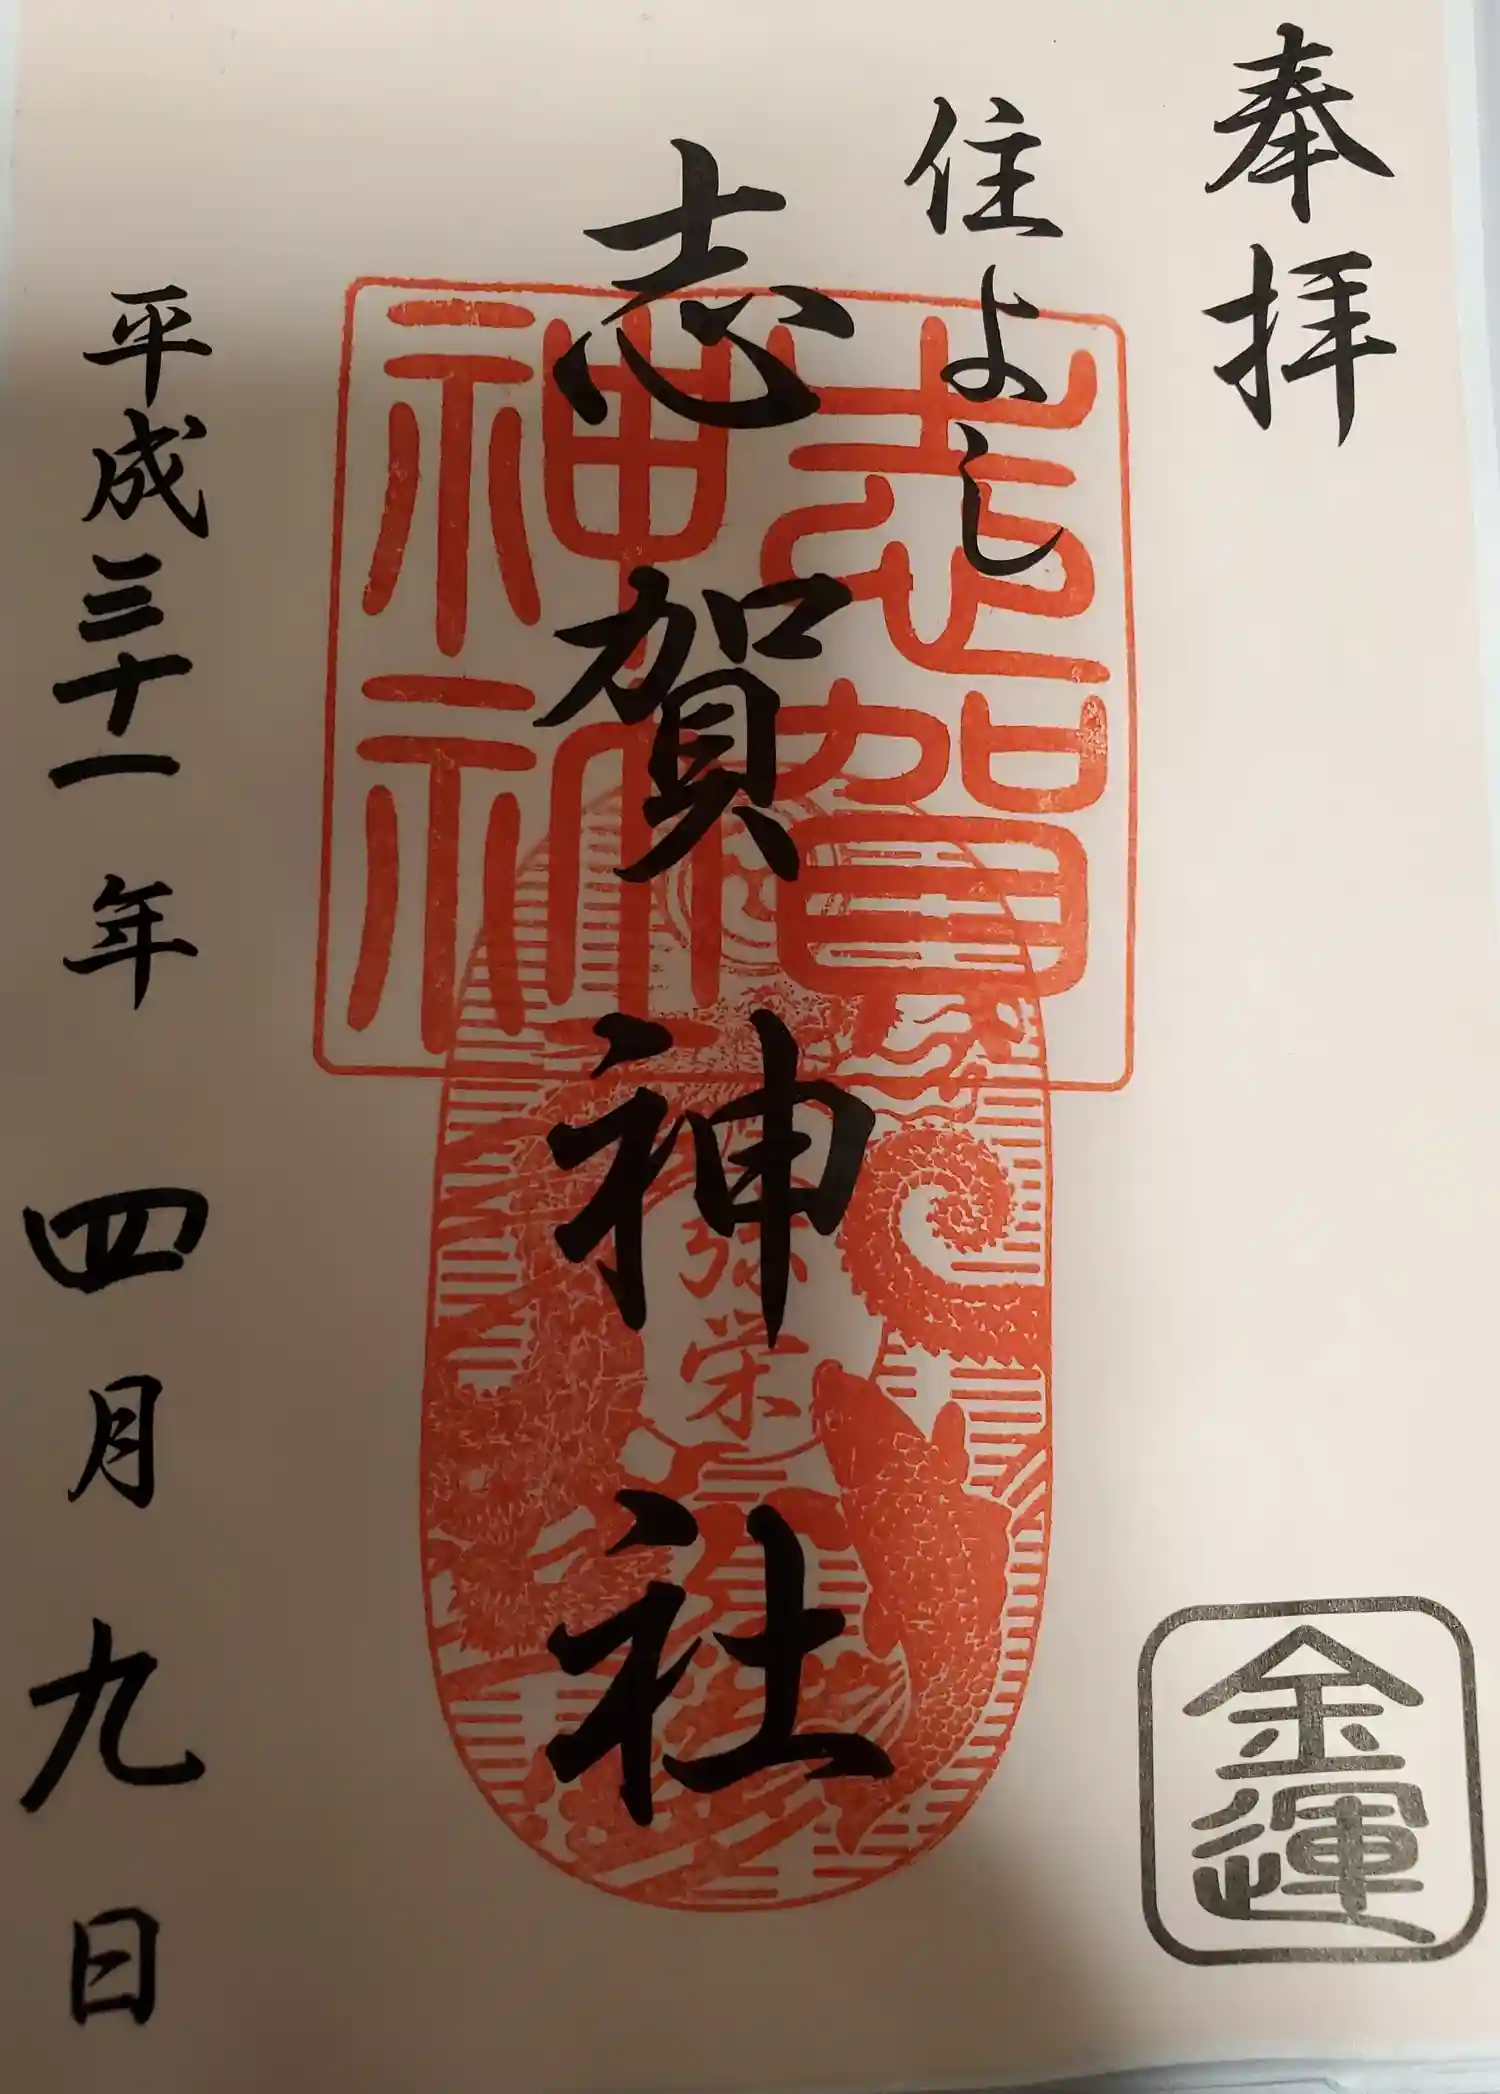 奉拝
住よし
志賀神社
志賀神社
弥栄
平成三十一年四月九日
金運